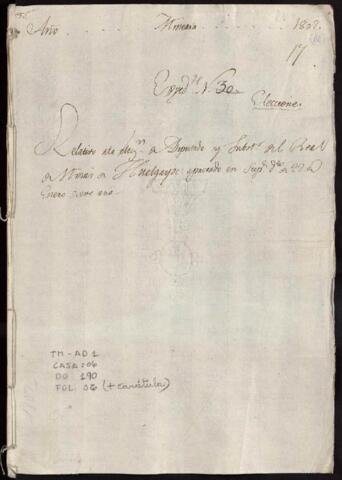 Año Mineria 1808.
17
Exped.te N. 30.
Elecciones
Relativo ala elecc.n de Diputado y Subst.o del Real
de Minas de Hualgayoc aprovado en Sup.r d.to de 22 de
Enero
TM-AD1
CAJA: 06
DO: 190
FOL. 06 (+ carátula)